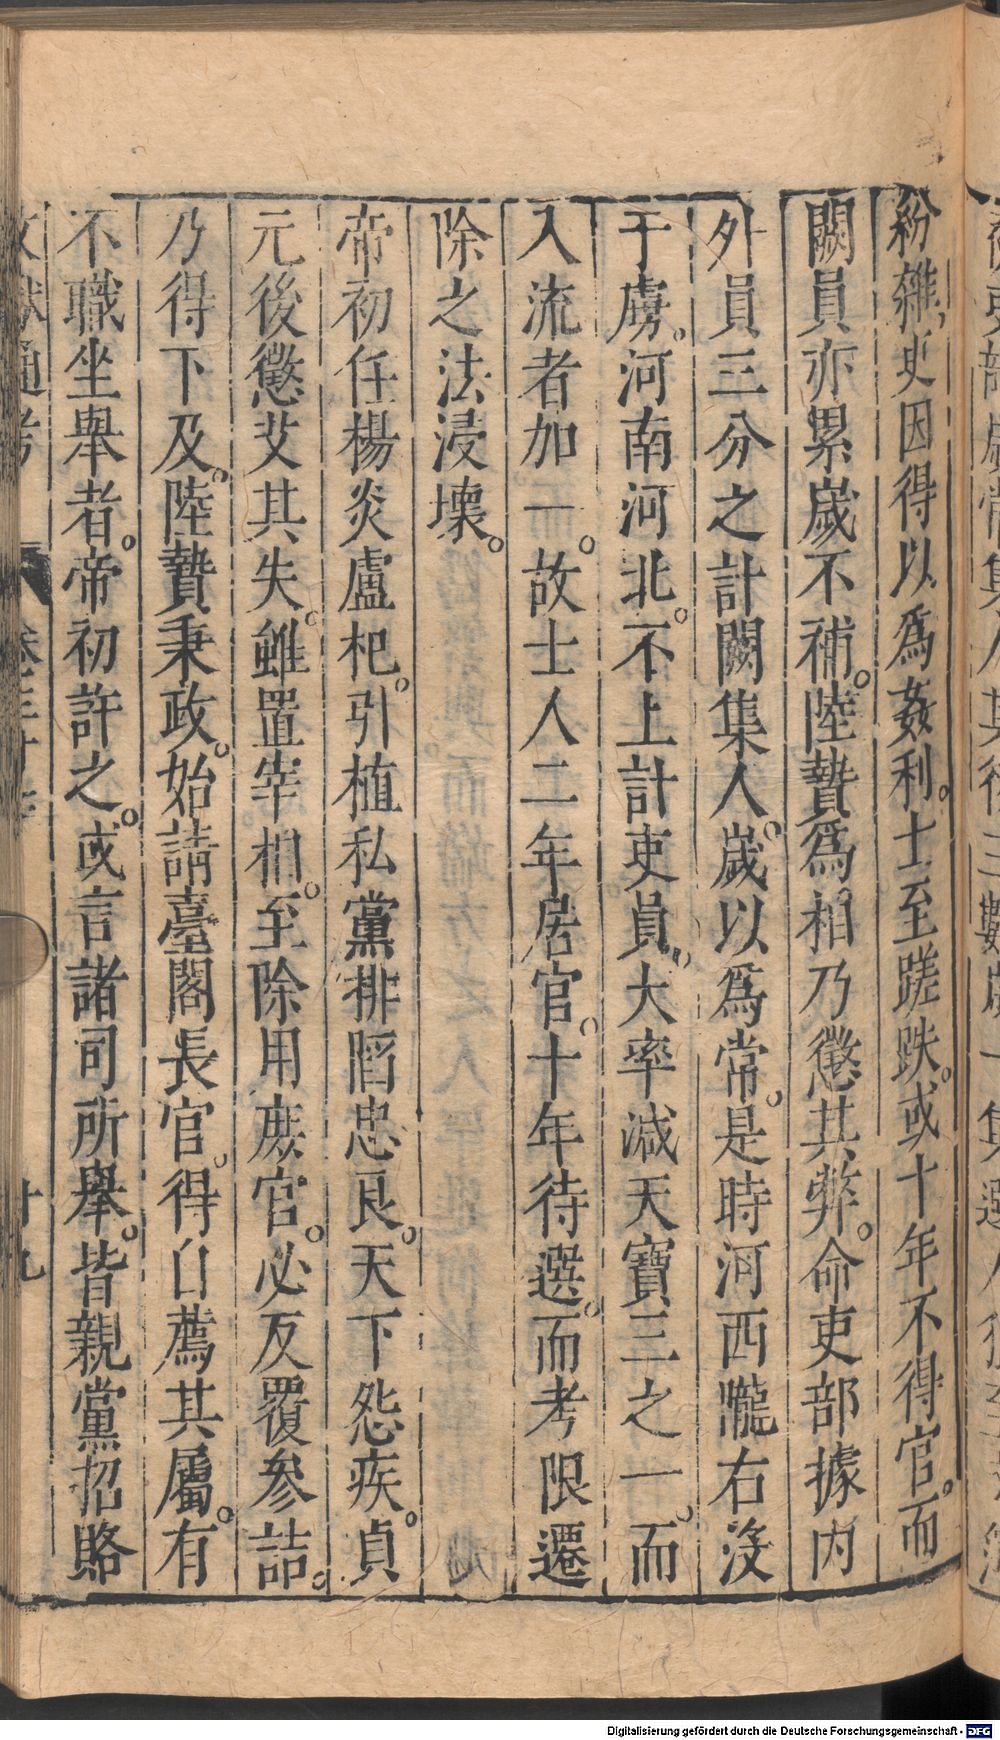 紛雜吏因得以爲姦利。士至蹉跌。或十年不得官。而
闕員亦累嵗不補。陸贄爲相。乃懲其弊。命吏部據內
外員三分之計闕集人。嵗以爲常。是時河西隴右沒
于虜。河南河北。不上計吏員。大率減天寶三之一。而
入流者加一。故士人二年居官。十年待選。而考限遷
除之法浸壞。
帝初任楊炎盧杞。引植私黨排䧟忠良。天下怨疾。貞
元後懲艾其失。雖置宰相。至除用庶官。必反覆參詰。
乃得下及。陸贄秉政。始請臺閣長官。得自薦其屬。有
不職坐舉者。帝初許之。或言諸司所舉。皆親黨招賂
文獻通考 十九
Digitalisierung gefördert durch die Deutsche Forschungsgemeinschaft - DFG